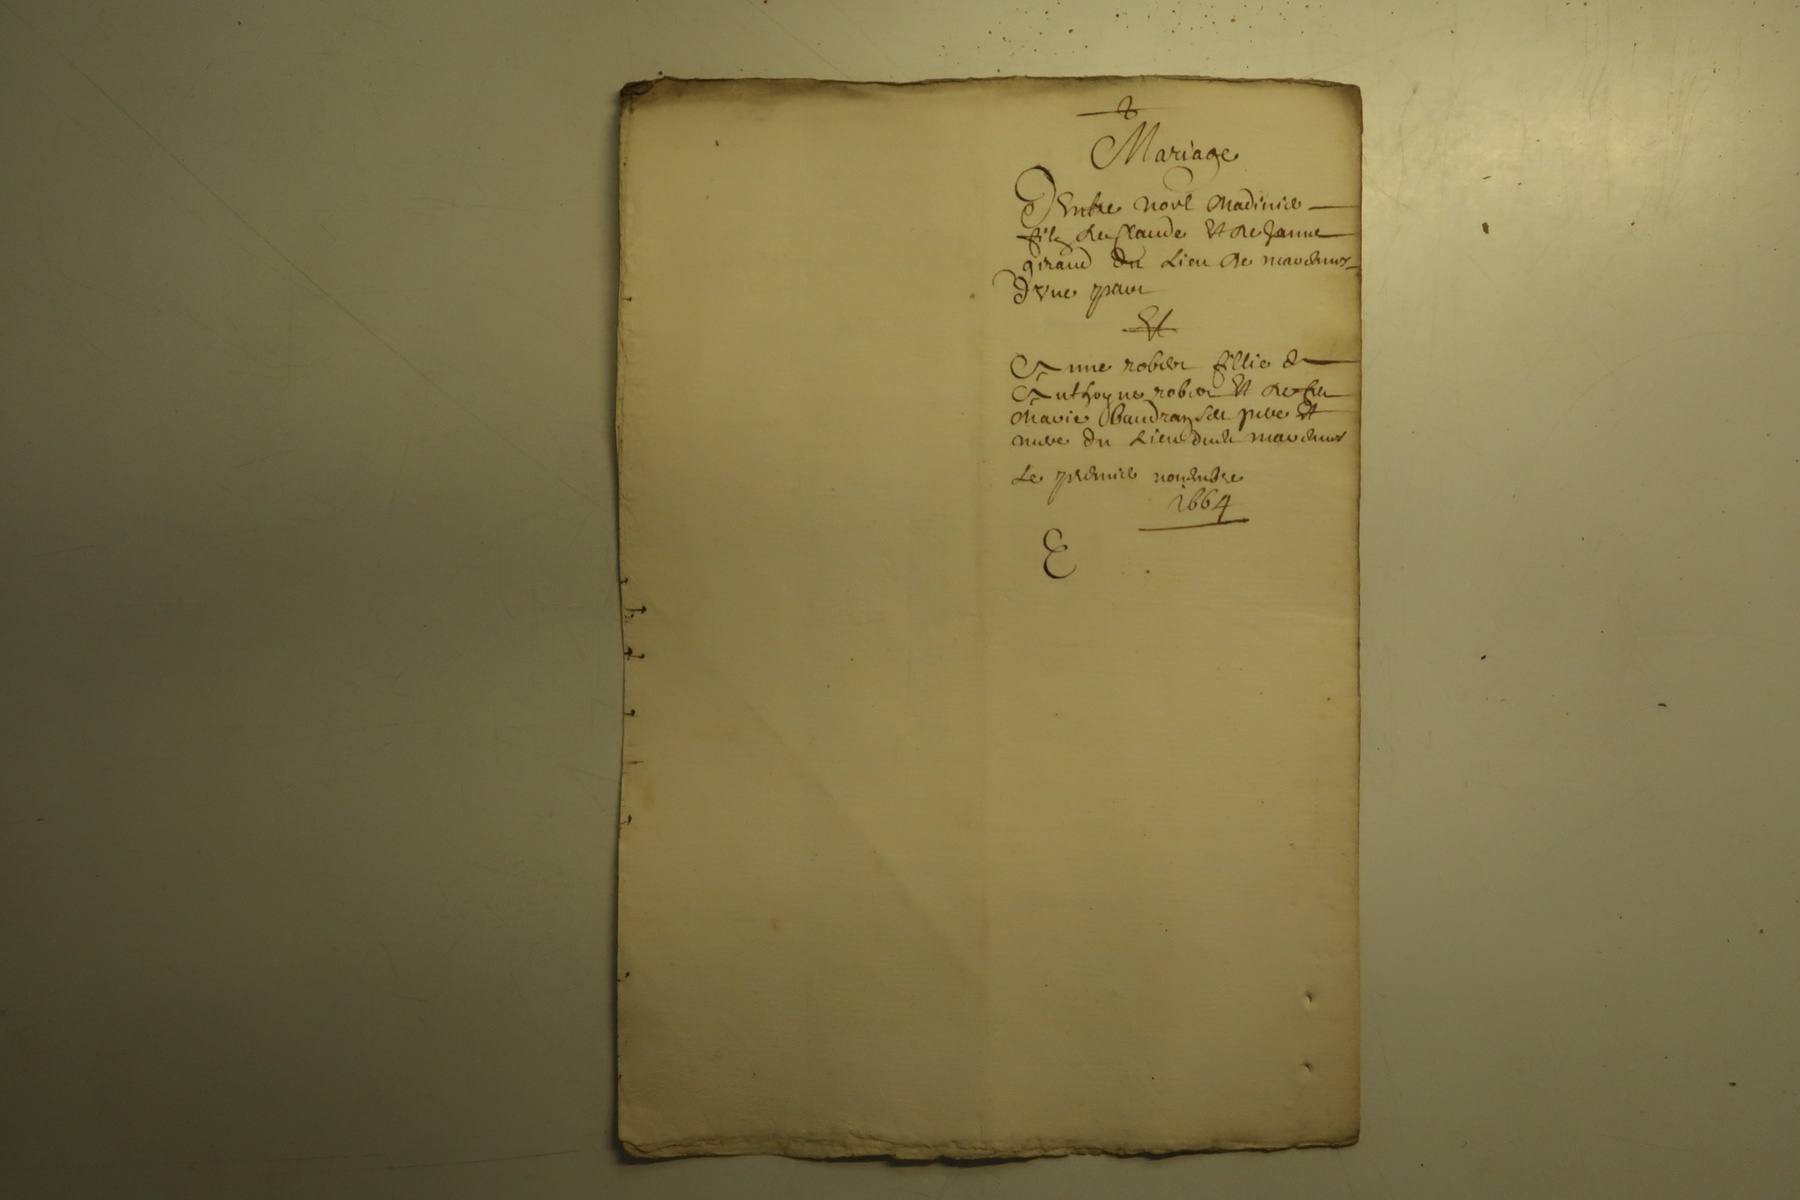 Mariage
D'Entre novel Madinier
filz de Claude Et de Janne
giraud du Lieu de
D'Vne part
Et
Anne robert fillie de
Anthoyne robert Et de feu
Marie Baudrand ses pere Et
mere du Lieu dudit
Le premier novembre
1664
E